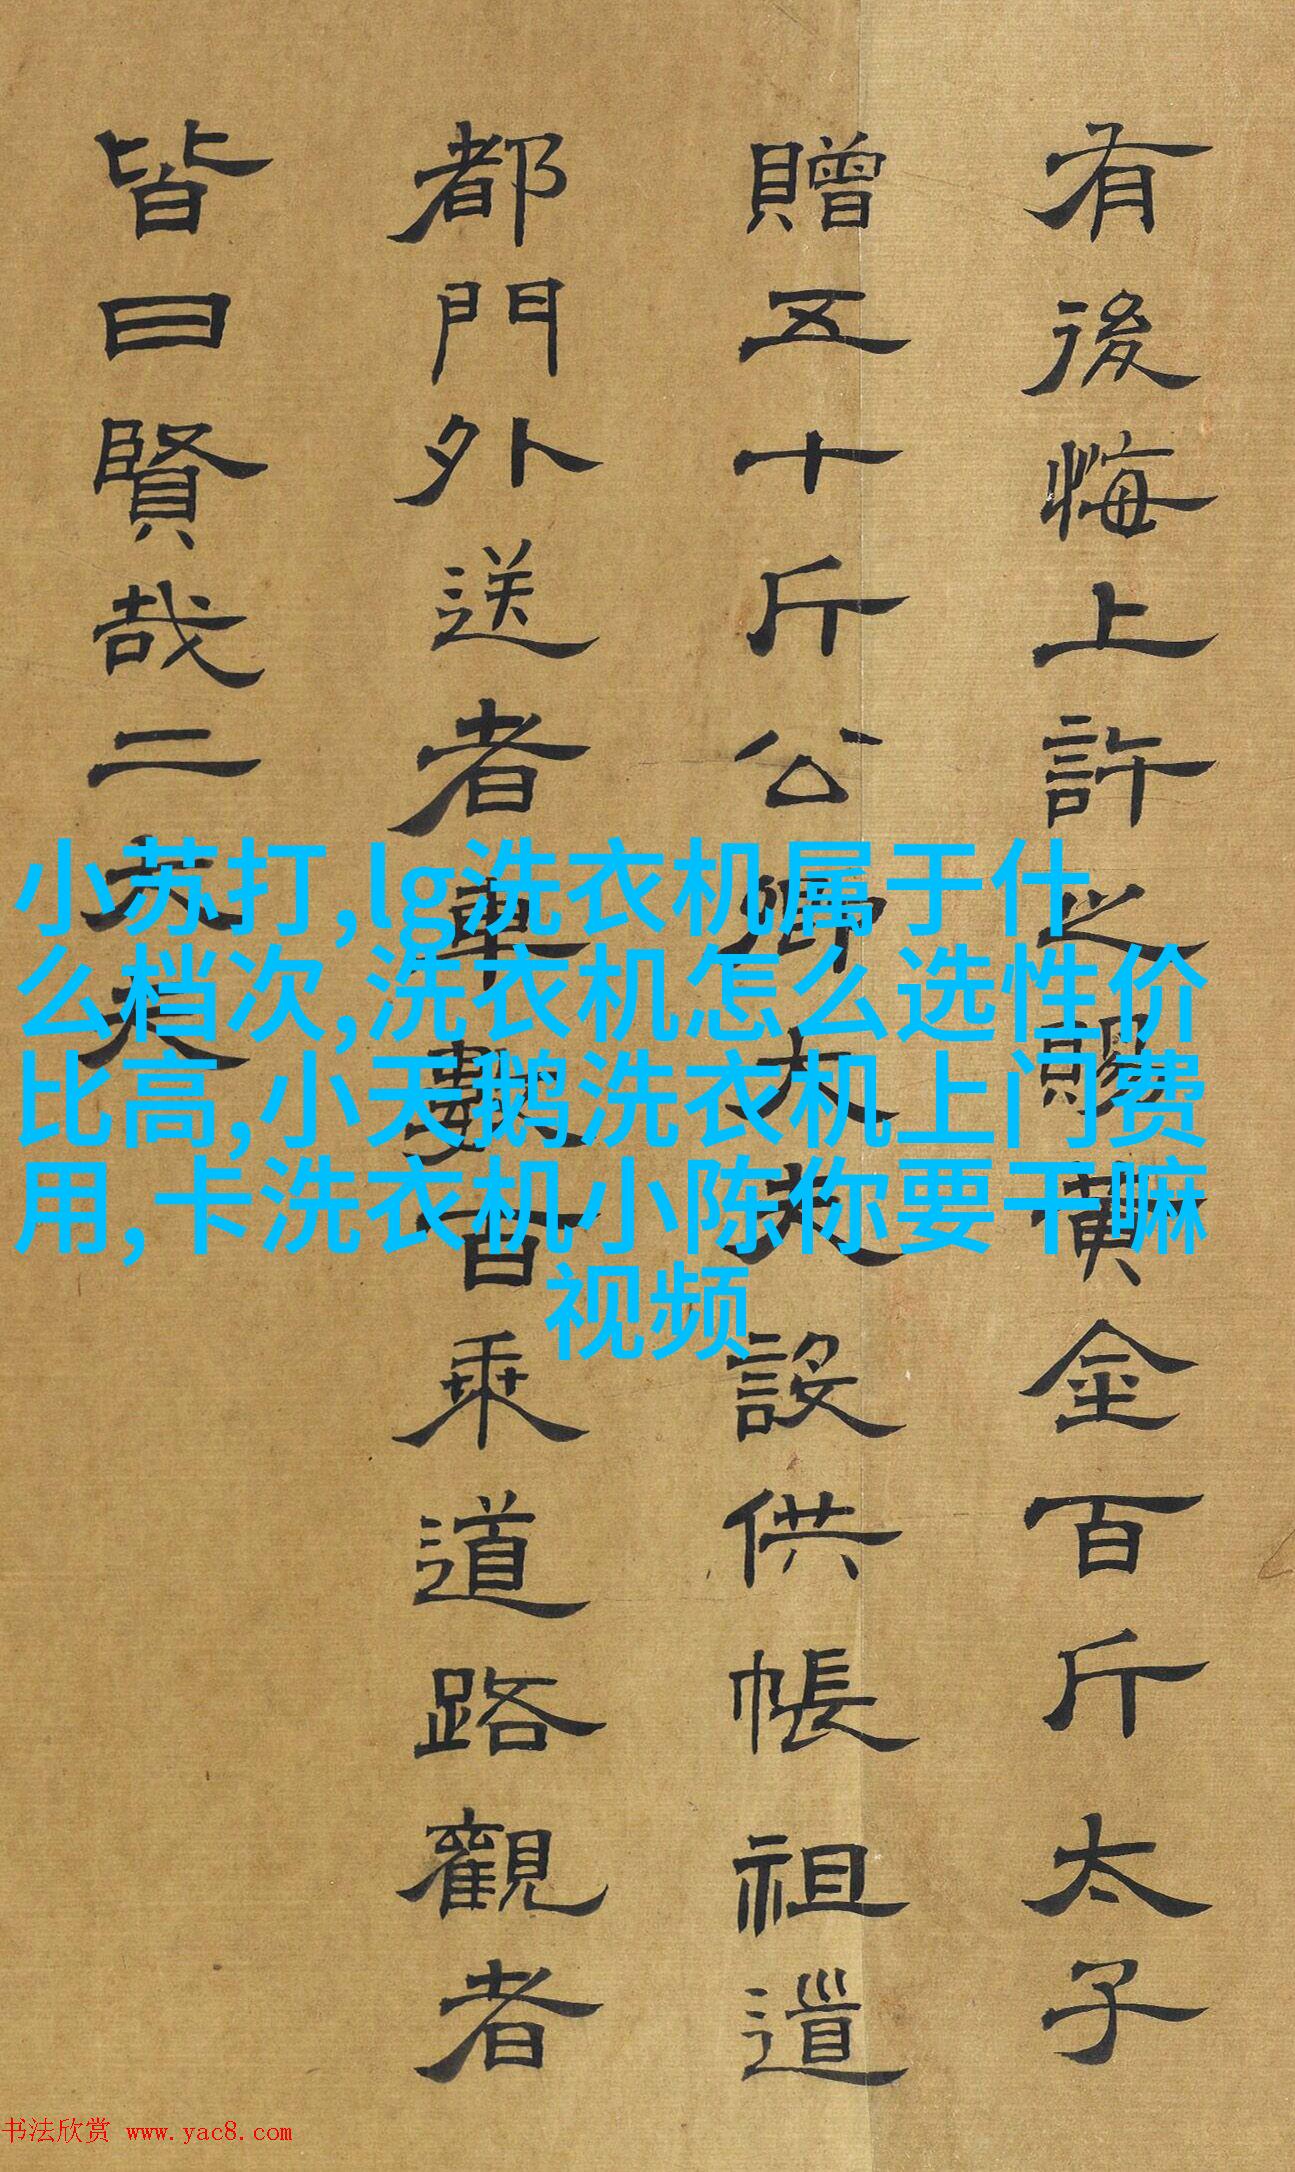 有後悔上許之賜黃金百斤太子
贈五十斤公卿大夫設供帳祖道
都門外送者車數百乘道路觀者
皆曰賢哉二大夫
小苏打,lg洗衣机属于什
么档次,洗衣机怎么选性价
比高,小天鹅洗衣机上门费
用,卡洗衣机小陈你要干嘛
视频
书法欣赏 www.yac8.com